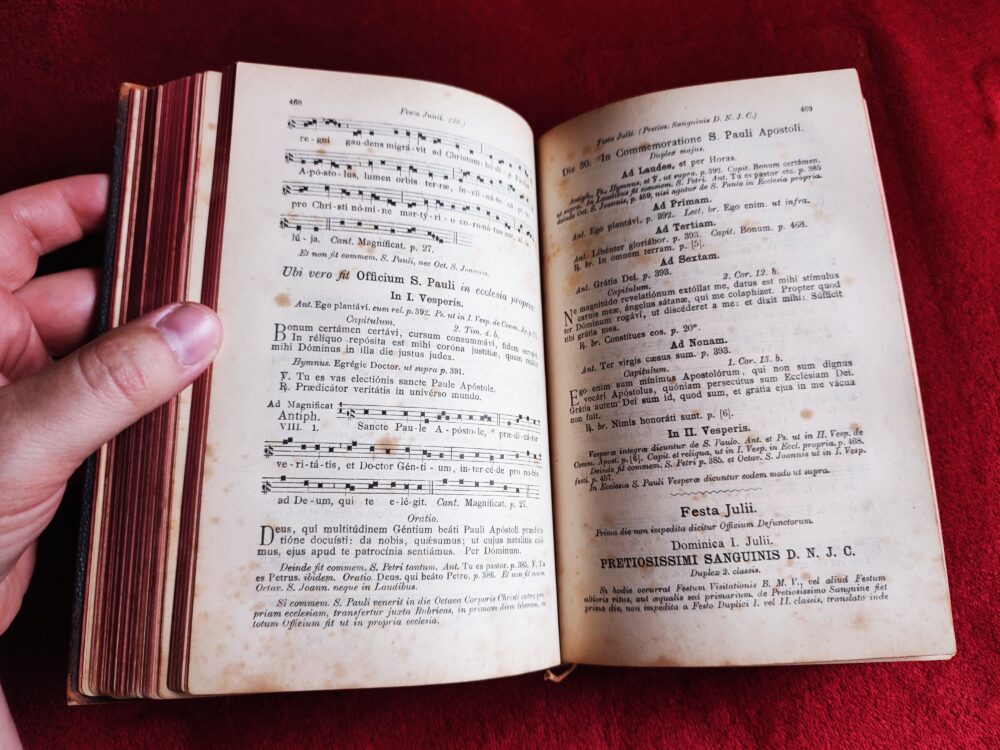 468
Festa Junii. (29.)
re - gni gau-dens migrá-vit ad Christum: hó-di-e
A-pó-sto-lus, lumen orbis ter-ræ, in-cli-ná-to cá-pi-te,
pro Chri-sti nó-mi-ne mar-tý-ri-o co-ro-ná-tus est, al-le-
lú-ja. Cant. Magníficat. p. 27.
Et non fit commem. S. Pauli, nec Oct. S. Joannis.
Ubi vero fit Officium S. Pauli in ecclesia propria:
In I. Vesperis.
Ant. Ego plantávi. cum rel. p. 392. Ps. ut in I. Vesp. de Comm. Ap. p.
Capitulum. 2. Tim. 4. b.
Bonum certámen certávi, cursum consummávi, fidem servávi.
In réliquo repósita est mihi coróna justítiæ, quam reddet
mihi Dóminus in illa die justus judex.
Hymnus. Egrégie Doctor. ut supra p. 391.
℣. Tu es vas electiónis sancte Paule Apóstole.
℟. Prædicátor veritátis in univérso mundo.
Ad Magnificat
Antiph.
VIII. 1.
Sancte Pau-le A-pó-sto-le, * præ-di-cá-tor
ve-ri-tá-tis, et Do-ctor Gén-ti-um, in-ter-cé-de pro nobis
ad De-um, qui te e-lé-git. Cant. Magníficat. p. 27.
Oratio.
Deus, qui multitúdinem Géntium beáti Pauli Apóstoli prædica-
tióne docuísti: da nobis, quǽsumus; ut cujus natalítia cóli-
mus, ejus apud te patrocínia sentiámus. Per Dóminum.
Deinde fit commem. S. Petri tantum. Ant. Tu es pastor. p. 385. ℣. Tu
es Petrus. ibidem. Oratio. Deus, qui beáto Petro. p. 386. Et non fit comm.
Octav. S. Joann. neque in Laudibus.
Si commem. S. Pauli venerit in die Octava Corporis Christi extra pro-
priam ecclesiam, transfertur juxta Rubricas, in primam diem liberam, sed
totum Officium fit ut in propria ecclesia.
469
Festa Julii. (Pretios. Sanguinis D. N. J. C.)
Die 30. In Commemoratione S. Pauli Apostoli.
Duplex majus.
Ad Laudes, et per Horas.
Antiph. Ps. Hymnus, et ℣. ut supra p. 392. Capit. Bonum certámen.
ut supra. In Laudibus fit commem. S. Petri. Ant. Tu es pastor etc. p. 385
deinde Oct. S. Joannis, p. 459, nisi agatur de S. Paulo in Ecclesia propria.
Ad Primam.
Ant. Ego plantávi. p. 392. Lect. br. Ego enim. ut infra.
Ad Tertiam.
Ant. Libénter gloriábor. p. 393. Capit. Bonum. p. 468.
℟. br. In omnem terram. p. [5].
Ad Sextam.
Ant. Grátia Dei. p. 393.
Capitulum. 2. Cor. 12. b.
Ne magnitúdo revelatiónum extóllat me, datus est mihi stímulus
carnis meæ, ángelus sátanæ, qui me colaphízet. Propter quod
ter Dóminum rogávi, ut discéderet a me: et dixit mihi: Súfficit
tibi grátia mea.
℟. br. Constítues eos. p. 20*.
Ad Nonam.
Ant. Ter virgis cæsus sum. p. 393.
Capitulum. 1. Cor. 15. b.
Ego enim sum mínimus Apostolórum, qui non sum dignus
vocári Apóstolus, quóniam persecútus sum Ecclésiam Dei.
Grátia autem Dei sum id, quod sum, et grátia ejus in me vácua
non fuit.
℟. br. Nimis honoráti sunt. p. [6].
In II. Vesperis.
Vesperæ integræ dicuntur de S. Paulo. Ant. et Ps. ut in II. Vesp. de
Comm. Apost. p. [6]. Capit. et reliqua, ut in I. Vesp. in Eccl. propria. p. 468.
Deinde fit commem. S. Petri p. 385. et Octav. S. Joannis ut in I. Vesp.
festi. p. 457.
In Ecclesia S. Pauli Vesperæ dicuntur eodem modo ut supra.
Festa Julii.
Prima die non impedita dicitur Officium Defunctorum.
Dominica I. Julii.
PRETIOSISSIMI SANGUINIS D. N. J. C.
Duplex 2. classis.
Si hodie occurrat Festum Visitationis B. M. V., vel aliud Festum
altioris ritus, aut æqualis sed primarium, de Pretiosissimo Sanguine fiet
prima die, non impedita a Festo Duplici I. vel II. classis, translato inde